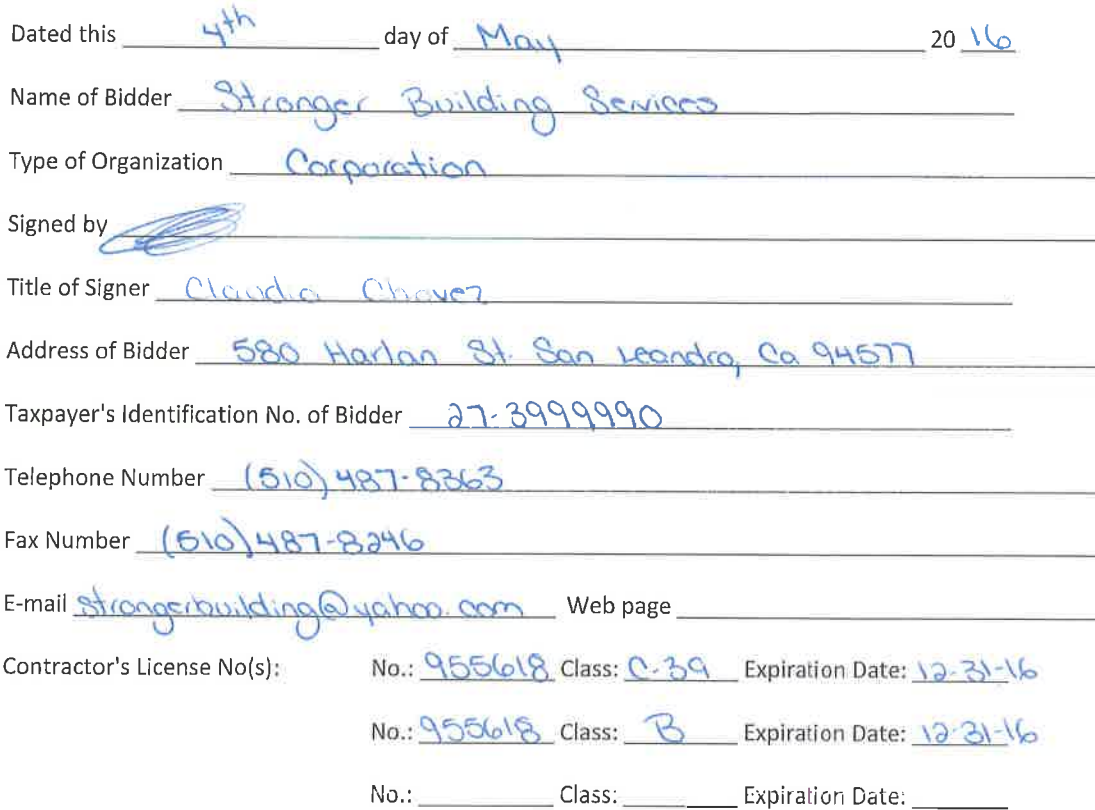 Dated this 4th day of May 20 16
Name of Bidder Stronger Building Services
Type of Organization Corporation
Signed by
Title of Signer Claudia Chavez
Address of Bidder 580 Harlan St. San Leandro, Ca 94577
Taxpayer's Identification No. of Bidder 27-3999990
Telephone Number (510) 487-8363
Fax Number (510) 487-8246
E-mail strongerbuilding@yahoo.com Web page
Contractor's License No(s): No.: 955618 Class: C-39 Expiration Date: 12-31-16
No.: 955618 Class: B Expiration Date: 12-31-16
No.: Class: Expiration Date: